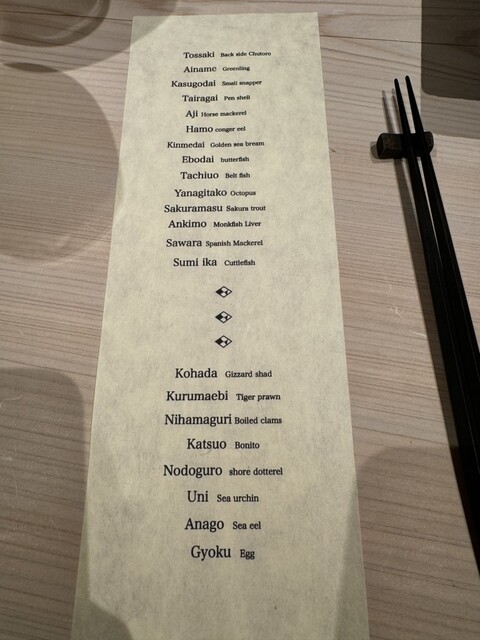 Tossaki Back side Chutoro
Ainame Greenling
Kasugodai Small snapper
Tairagai Pen shell
Aji Horse mackerel
Hamo conger eel
Kinmedai Golden sea bream
Ebodai butterfish
Tachiuo Belt fish
Yanagitako Octopus
Sakuramasu Sakura trout
Ankimo Monkfish Liver
Sawara Spanish Mackerel
Sumi ika Cuttlefish
Kohada Gizzard shad
Kurumaebi Tiger prawn
Nihamaguri Boiled clams
Katsuo Bonito
Nodoguro shore dotterel
Uni Sea urchin
Anago Sea eel
Gyoku Egg